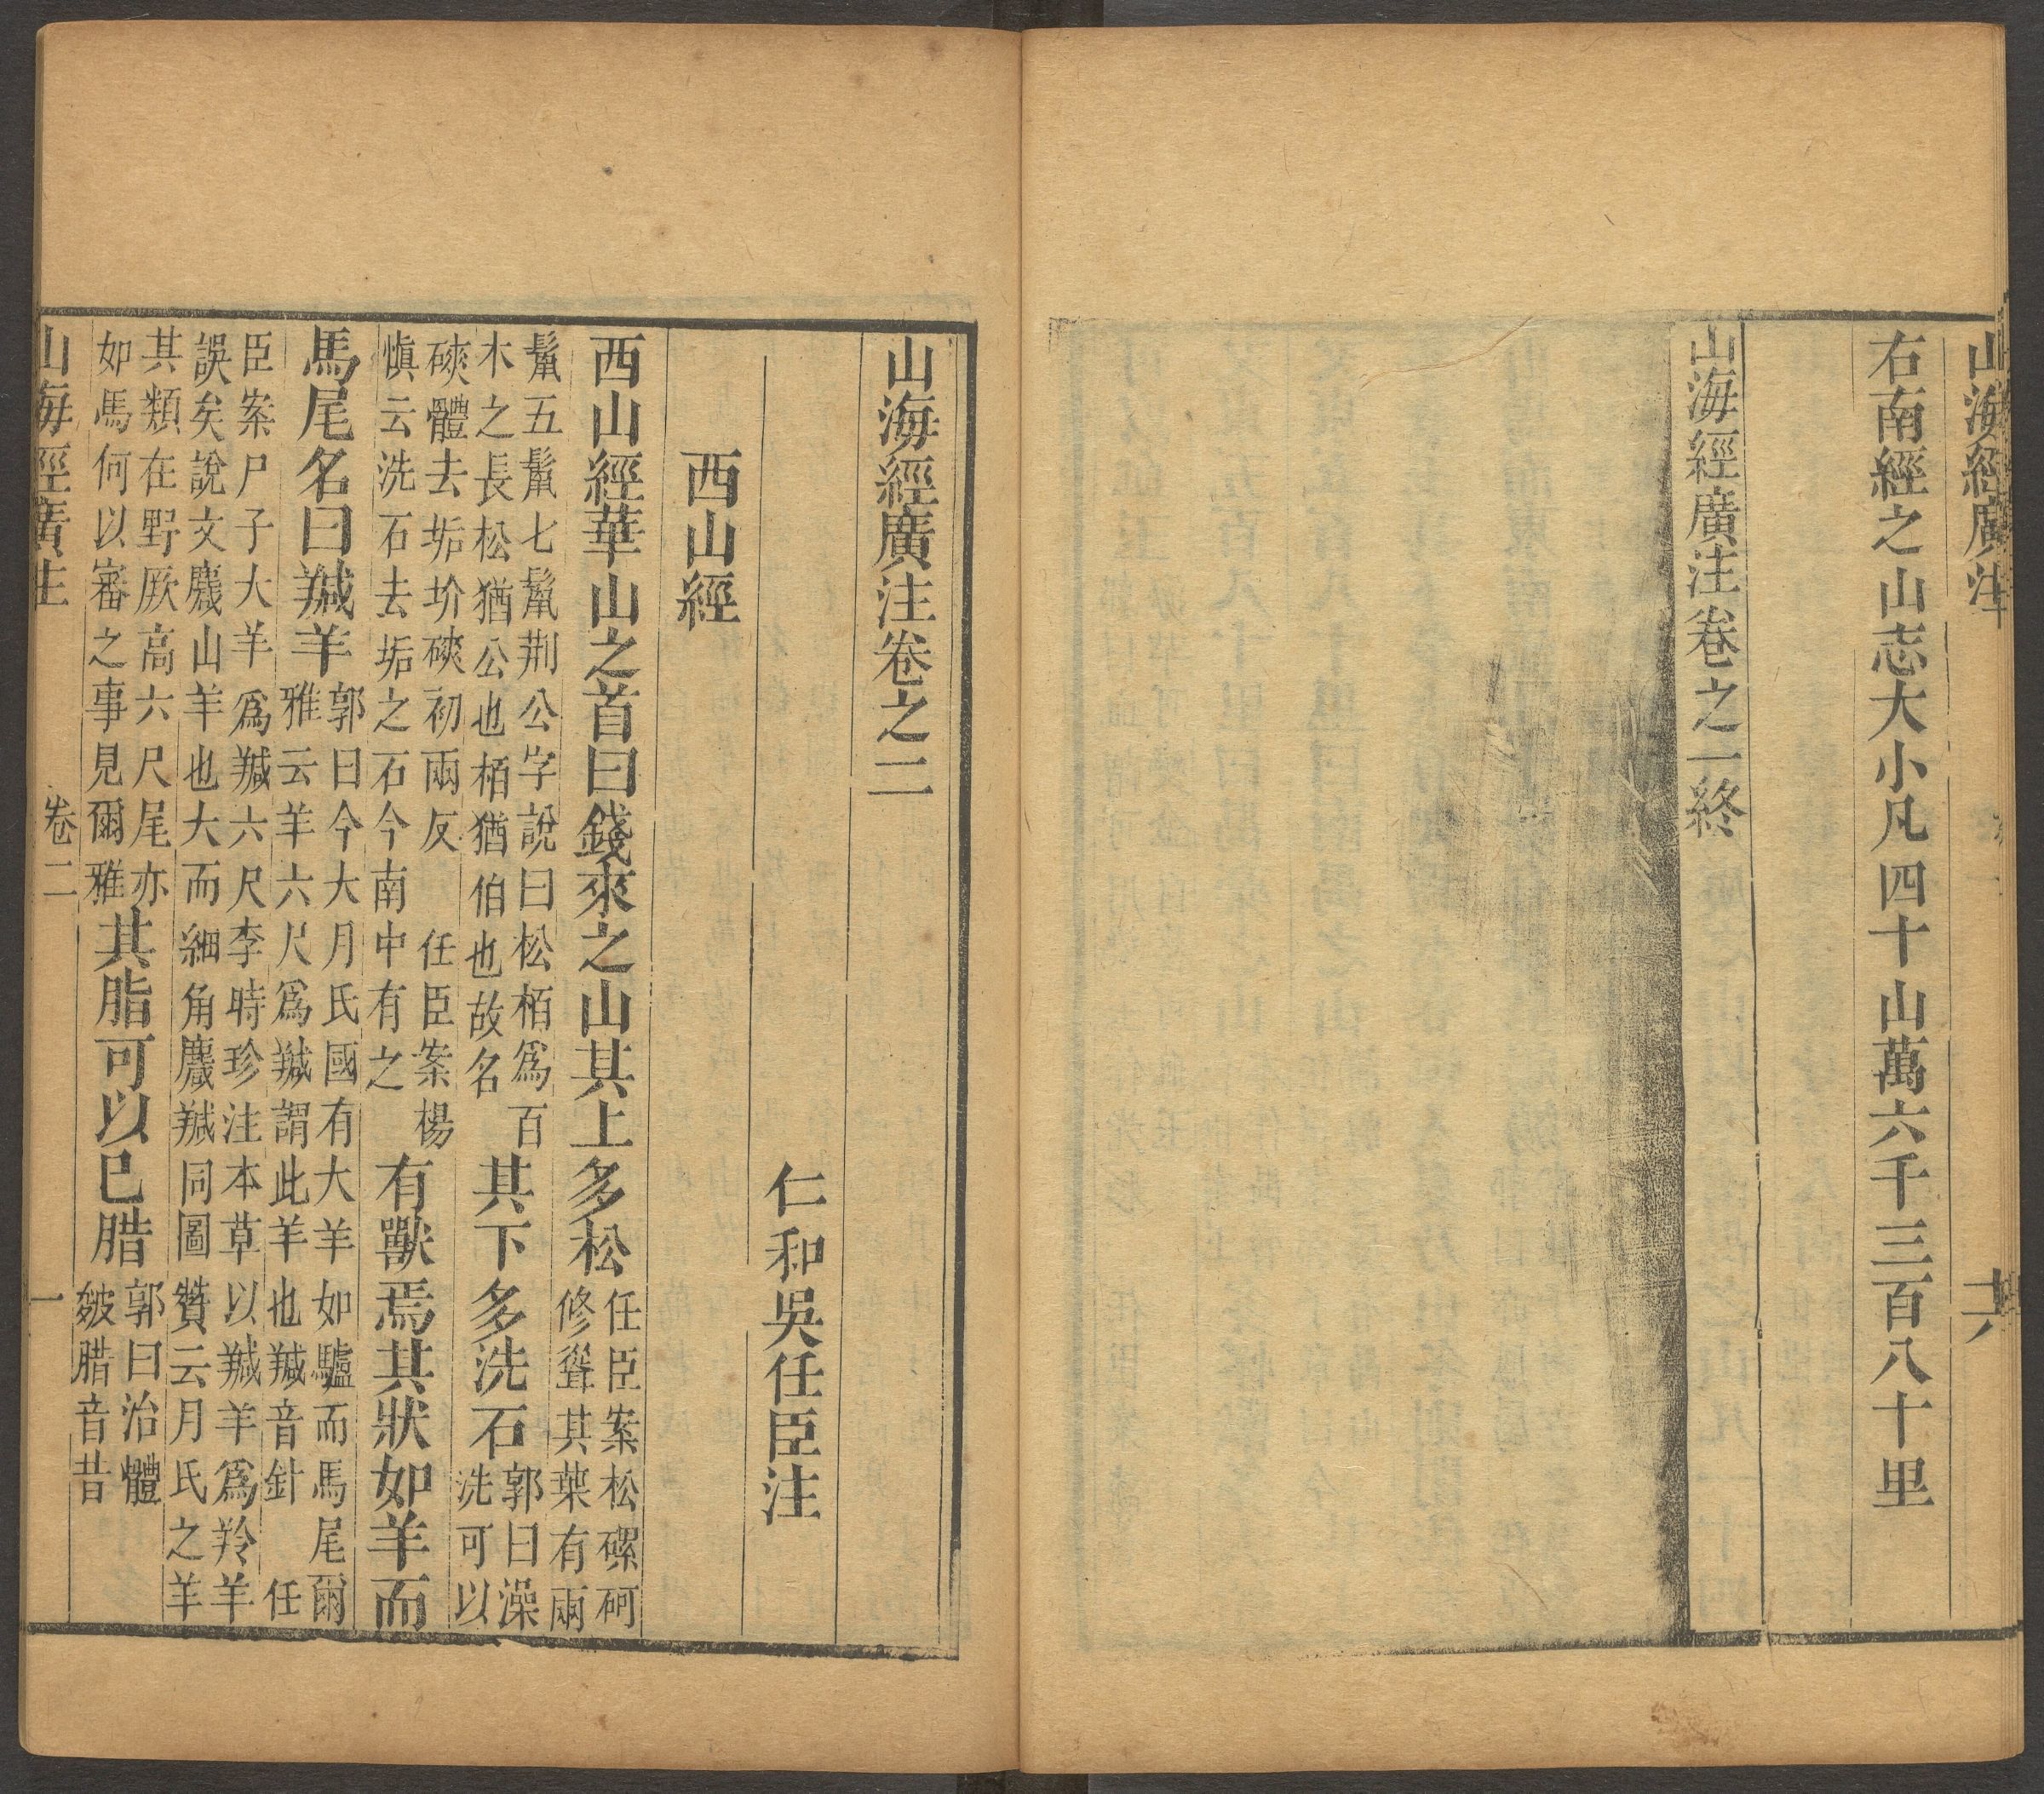 山海經廣注
六
右南經之山志大小凡四十山萬六千三百八十里
山海經廣注卷之一終
山海經廣注卷之二
仁和吳任臣注
西山經
西山經華山之首曰錢來之山其上多松
任臣案松磥砢
修聳其葉有兩
鬣五鬣七鬣荆公字說曰松栢爲百
木之長松猶公也栢猶伯也故名
其下多洗石
郭曰澡
洗可以
磢體去垢圿磢初兩反 任臣案楊
愼云洗石去垢之石今南中有之
有獸焉其狀如羊而
馬尾名曰羬羊
郭曰今大月氏國有大羊如驢而馬尾爾
雅云羊六尺爲羬謂此羊也羬音針 任
臣案尸子大羊爲羬六尺李時珍注本草以羬羊爲羚羊
誤矣說文麙山羊也大而細角麙羬同圖贊云月氏之羊
其類在野厥高六尺尾亦
如馬何以審之事見爾雅
其脂可以已腊
郭曰治體
皴腊音昔
山海經廣注
卷二
一